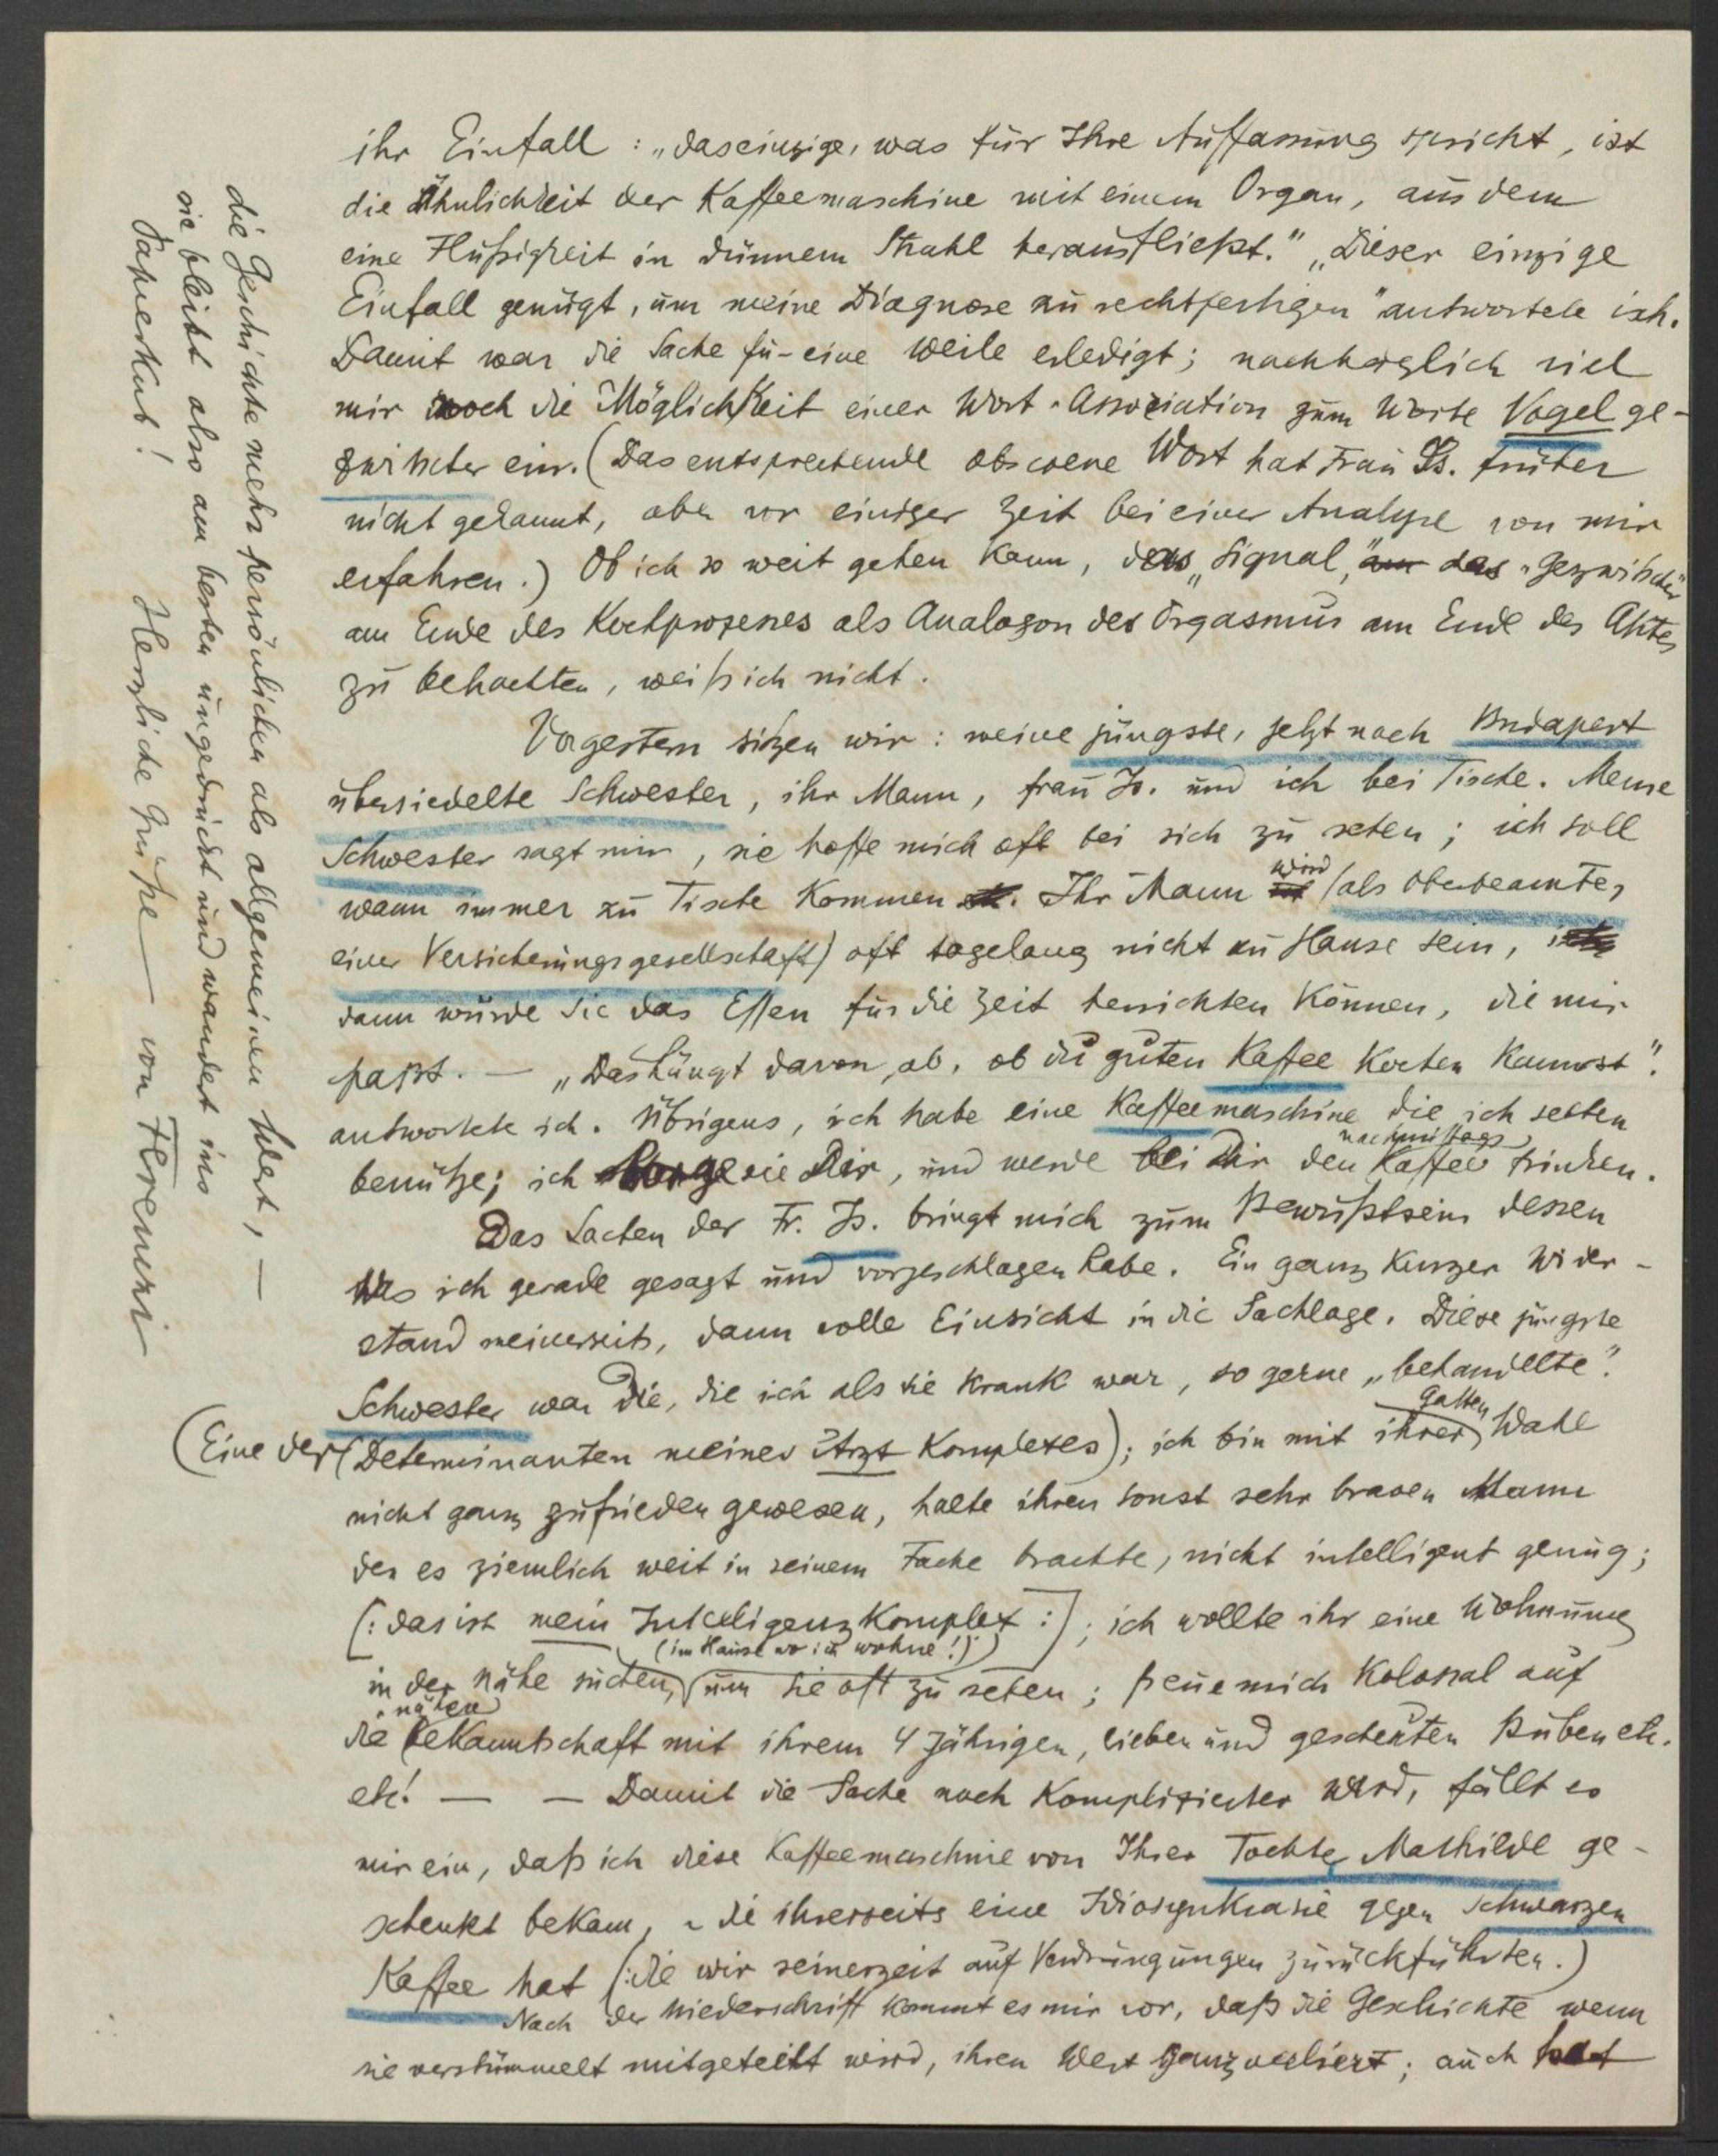 ihr Einfall: „das einzige, was für Ihre Auffassung spricht, ist
die Ähnlichkeit der Kaffeemaschine mit einem Organ, aus dem
eine Flüßigkeit in dünnem Strahl herausfließt." „Dieser einzige
Einfall genügt, um meine Diagnose zu rechtfertigen" antwortete ich.
Damit war die Sache für eine Weile erledigt; nachträglich viel
mir noch die Möglichkeit einer Wort-Association zum Worte Vogelge-
zwitscher ein. (Das entsprechende obscoene Wort hat Frau Is. früher
nicht gekannt, aber vor einiger Zeit bei einer Analyse von mir
erfahren.) Ob ich so weit gehen kann, das „Signal," das „Gezwitscher"
am Ende des Kochprozesses als Analogon des Orgasmus am Ende des Aktes
zu betrachten, weiß ich nicht.
Vorgestern sitzen wir: meine jüngste, jetzt nach Budapest
übersiedelte Schwester, ihr Mann, Frau Is. und ich bei Tische. Meine
Schwester sagt mir, sie hoffe mich oft bei sich zu sehen; ich soll
wann immer zu Tische kommen. Ihr Mann wird (als Oberbeamter
einer Versicherungsgesellschaft) oft tagelang nicht zu Hause sein,
dann würde sie das Essen für die Zeit herrichten können, die mir
paßt. — „Das hängt davon ab, ob du guten Kaffee kochen kannst".
antwortete ich. Übrigens, ich habe eine Kaffeemaschine die ich selten
benütze; ich borge sie Dir, und werde bei Dir den nachmittags Kaffee trinken.
Das Lachen der Fr. Is. bringt mich zum Bewußtsein dessen
was ich gerade gesagt und vorgeschlagen habe. Ein ganz kurzer Wider-
stand meinerseits, dann volle Einsicht in die Sachlage. Diese jüngste
Schwester war die, die ich als sie krank war, so gerne „behandelte".
(Eine der (Determinanten meines Arzt Komplexes); ich bin mit ihrer Gatten Wahl
nicht ganz zufrieden gewesen, halte ihren sonst sehr braven Mann
der es ziemlich weit in seinem Fache brachte, nicht intelligent genug;
[: das ist mein Intelligenzkomplex :]; ich wollte ihr eine Wohnung
in der Nähe suchen, (im Hause wo ich wohne!) um sie oft zu sehen; freue mich kolossal auf
die nähere Bekanntschaft mit ihrem 4 jährigen, lieben und gescheuten Buben etc.
etc! — — Damit die Sache noch komplizierter wird, fällt es
mir ein, daß ich diese Kaffeemaschine von Ihrer Tochter Mathilde ge-
schenkt bekam, die ihrerseits eine Idiosynkrasie gegen schwarzen
Kaffee hat (: die wir seinerzeit auf Verdrängungen zurückführten.)
Nach der Niederschrift kommt es mir vor, daß die Geschichte wenn
sie verstümmelt mitgeteilt wird, ihren Wert ganz verliert; auch hat
die Geschichte mehr persönlichen als allgemeinen Wert, —
sie bleibt also am besten ungedruckt und wandert ins
Papierkorb! Herzliche Grüße — von Ferenczi